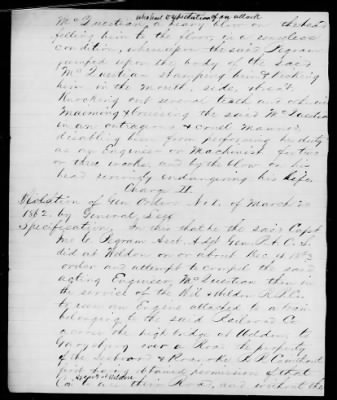 without expectation of an attack
Mc Questian a heavy blow on the head
felling him to the floor in a senseless
condition, whereupon the said Pegram
jumped upon the body of the said
Mc Questian stamping him & kicking
him in the mouth, side, &
Knocking out several teeth and otherwise
maiming & bruising the said Mc Questian
in an outrageous & cruel manner,
disabling him from performing his duty
as an Engineer or Machinist for two
or three weeks, and by the blow on his
head seriously endangering his life.
Charge II.
Violation of Gen Orders No of March 20
1862. by General
Specification. In this that he the said Capt
Pegram Asst. Adjt. Genl. P. A. C. S.
did at Weldon on or about Dec
order and attempt to compel the said
acting Engineer, Mc Questian then in
the service of the Wil & Weldon R. R. Co
to run an Engine attached to a train
belonging to the said Railroad Co
across the high bridge at Weldon to
Garysburg over a Road the property
of the Seaboard & Roanoke R. R. Co without
first having obtained permission of that
Co. to use their Road, and without the